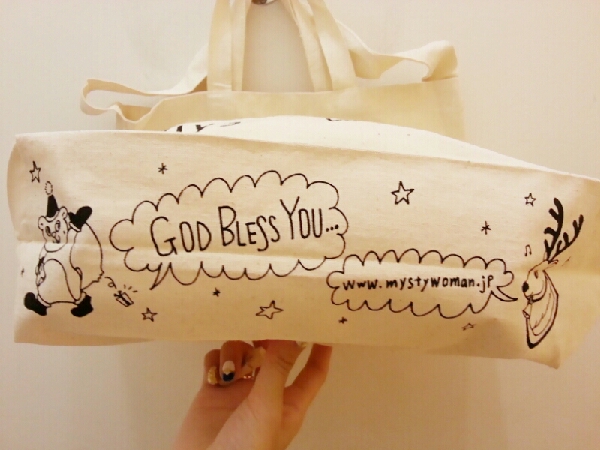 GOD BLESS YOU...
www.mystywoman.jp